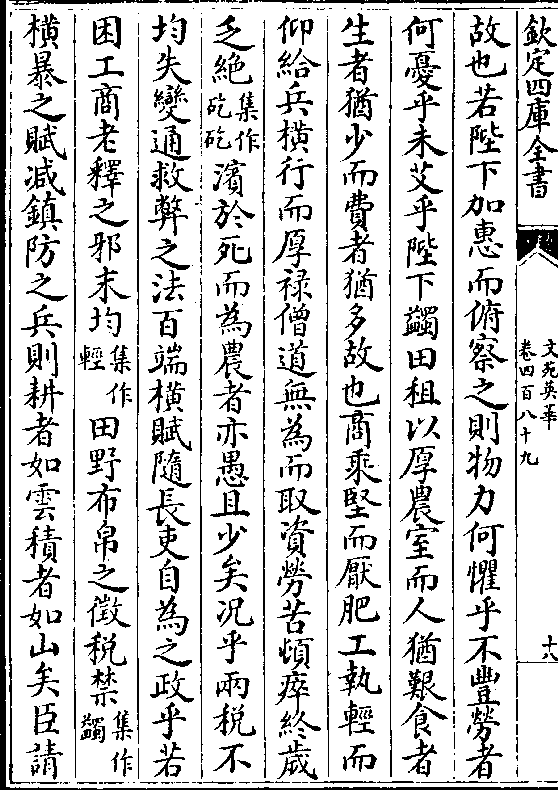 欽定四庫全書
文苑英華
卷四百八十九
十八
故也若陛下加惠而俯察之則物力何懼乎不豐勞者
何憂乎未艾乎陛下蠲田租以厚農室而人猶艱食者
生者猶少而費者猶多故也商乘堅而厭肥工執輕而
仰給兵橫行而厚祿僧道無為而取資勞苦頓瘁終歲
乏絶集作矻矻濱於死而為農者亦愚且少矣况乎兩稅不
均失變通救弊之法百端橫賦隨長吏自為之政乎若
困工商老釋之邪末均集作輕田野布帛之徵稅禁集作蠲
橫暴之賦减鎮防之兵則耕者如雲積者如山矣臣請